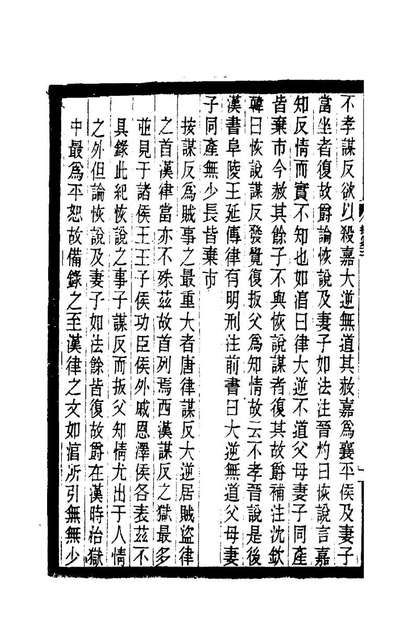 不孝謀反欲以殺嘉大逆無道其赦嘉爲襄平侯及妻子
當坐者復故爵論恢說及妻子如法注晉灼曰恢說言嘉
知反情而實不知也如淳曰律大逆不道父母妻子同產
皆棄市今赦其餘子不與恢說謀者復其故爵補注沈欽
韓曰恢說謀反發覺復扳父爲知情故云不孝晉說是後
漢書阜陵王延傳律有明刑注前書曰大逆無道父母妻
子同產無少長皆棄市
按謀反爲賊事之最重大者唐律謀反大逆居賊盜律
之首漢律當亦不殊茲故首列焉西漢謀反之獄最多
並見于諸侯王王子侯功臣侯外戚恩澤侯各表茲不
具錄此紀恢說之事子謀反而扳父知情尤出于人情
之外但論恢說及妻子如法餘皆復故爵在漢時治獄
中最爲平恕故備錄之至漢律之文如淳所引無無少